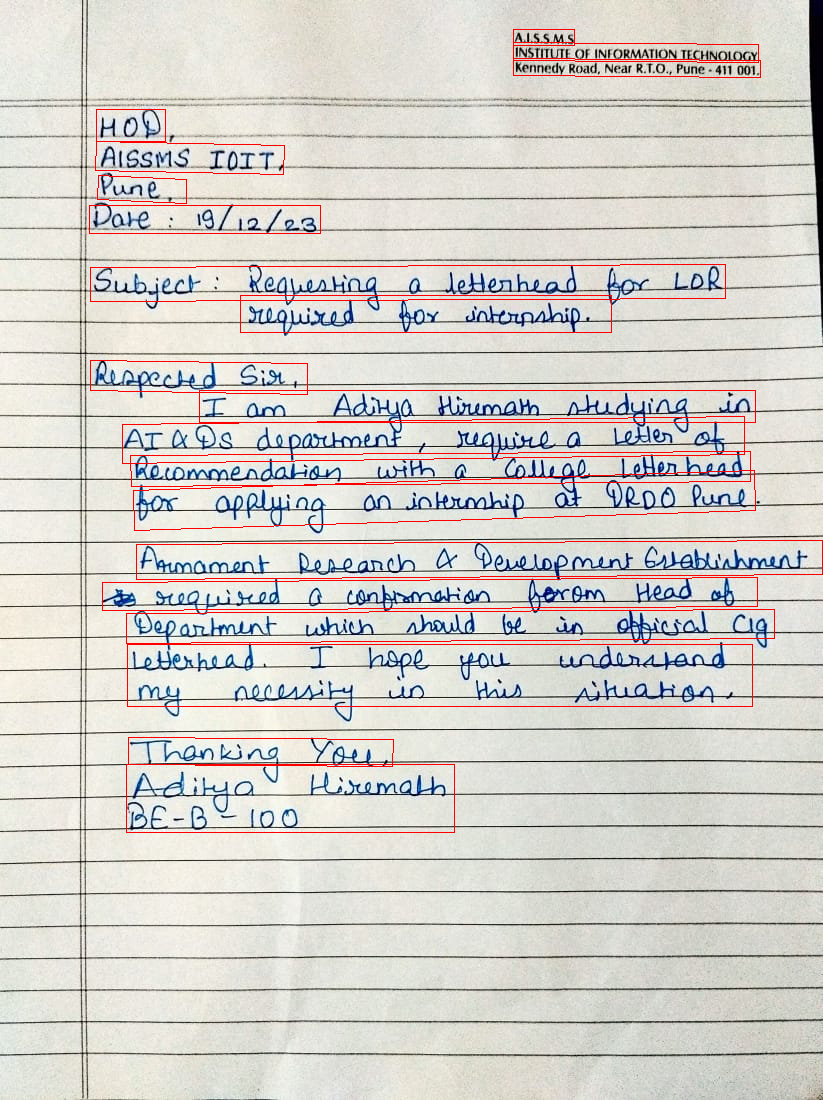 A.I.S.S.M.S
INSTITUTE OF INFORMATION TECHNOLOGY
Kennedy Road, Near R.T.O., Pune - 411 001.
HOD,
AISSMS IOIT,
Pune,
Date : 19/12/23
Subject : Requesting a letterhead for LOR
required for internship.
Respected Sir,
I am Aditya Hiremath studying in
AI & DS department, require a Letter of
Recommendation with a College Letterhead
for applying an internship at DRDO Pune.
Armament Research & Development Establishment
required a confirmation from Head of
Department which should be in official Clg
Letterhead. I hope you understand
my necessity in this situation.
Thanking You,
Aditya Hiremath
BE-B-100